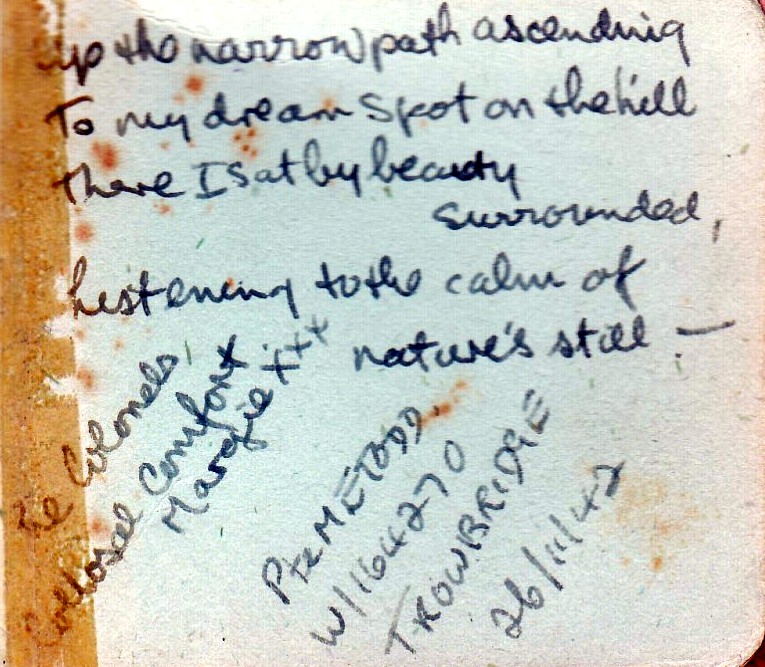 up the narrow path ascending
To my dream spot on the hill
There I sat by beauty
surrounded,
Listening to the calm of
nature's still —
The Colonels
Collosal Comfort
Margie xxxx
Pte M E TODD.
W/164270
TROWBRIDGE
26/11/42